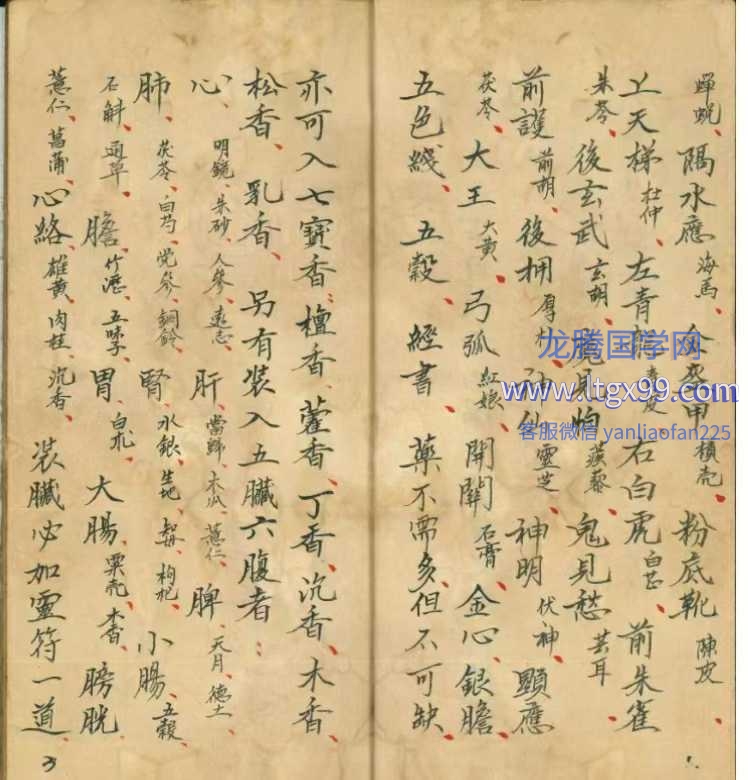 蟬蛻、隔水應 海馬、金 甲 壳、粉底靴 陳皮、
上天梯 杜仲、左青龍 青皮、右白虎 白芷、前朱雀
朱苓、後玄武 玄胡、鬼見怕 蒺藜、鬼見愁 芸耳、
前護 前胡、後拥 厚朴、神仙 靈芝、神明 伏神、顯應
茯苓、大王 大黄、弓弧 紅娘、開關 石膏、金心、銀膽、
五色綫、五穀、經書、藥不需多、但不可缺、
亦可入七寶香、檀香、藿香、丁香、沉香、木香、
松香、乳香、另有装入五臟六腹者：
心 明鏡、朱砂、人參、遠志、肝 當歸、木瓜、薏仁、脾 天月、德土、
肺 茯苓、白芍、党參、銅鈴、腎 水銀、生地、枸杞、小腸 五穀、
石斛、通草、膽 竹瀝、五味子、胃 白朮、大腸 粟壳、木香、膀胱
薏仁、菖蒲、心絡 雄黄、肉桂、沉香、装臟必加靈符一道、
龙腾国学网
www.ltgx99.com
客服微信 yanliaofan225